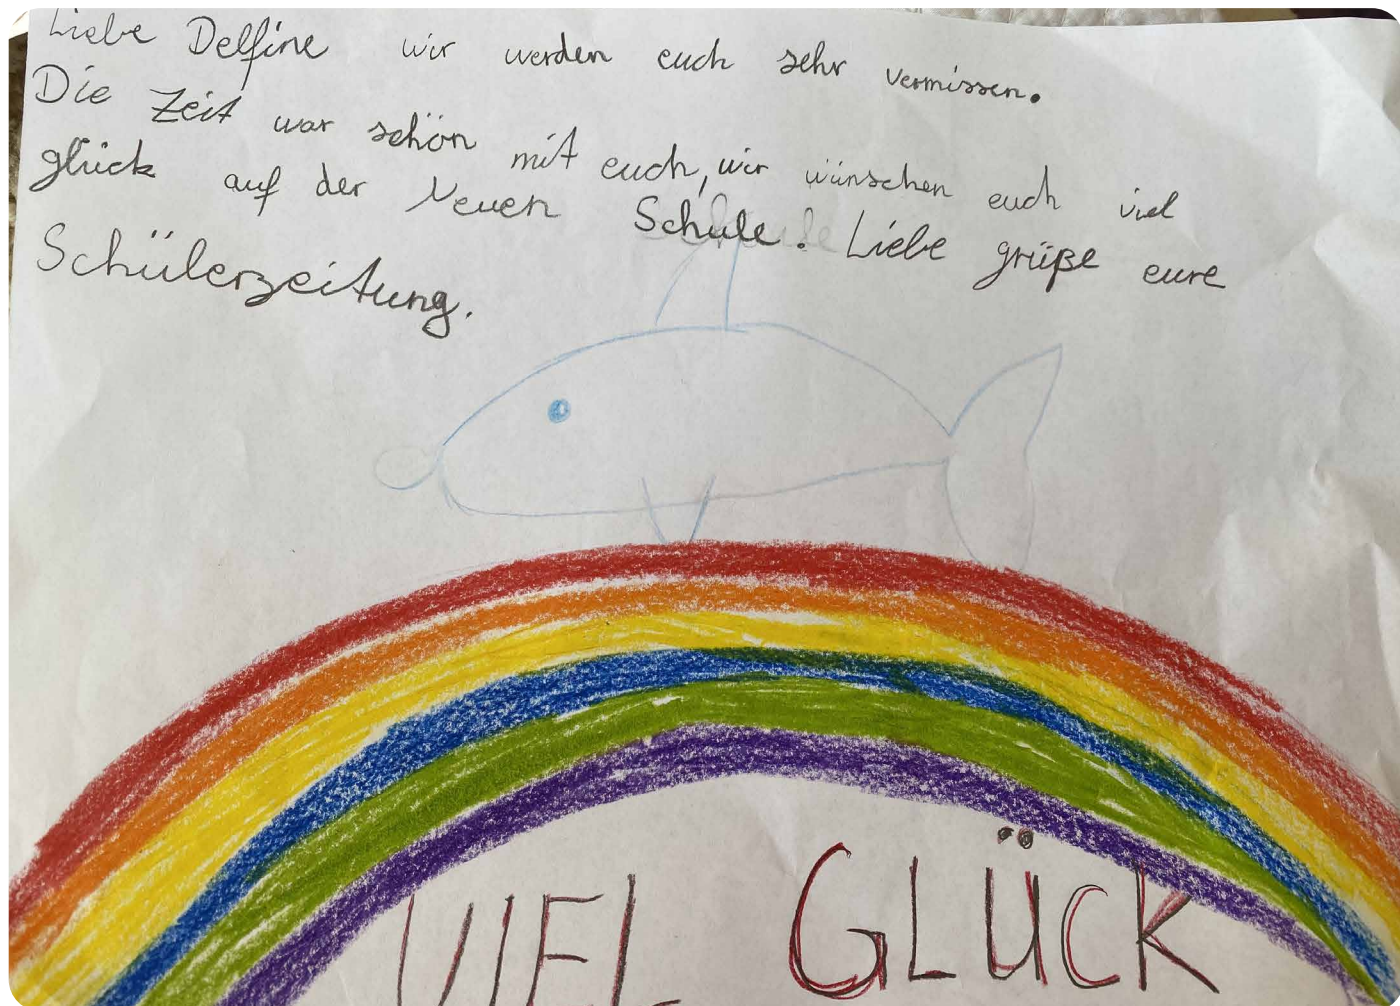 Liebe Delfine wir werden euch sehr vermissen.
Die Zeit war schön mit euch, wir wünschen euch viel
glück auf der Neuen Schule! Liebe grüße eure
Schülerzeitung.
VIEL GLÜCK